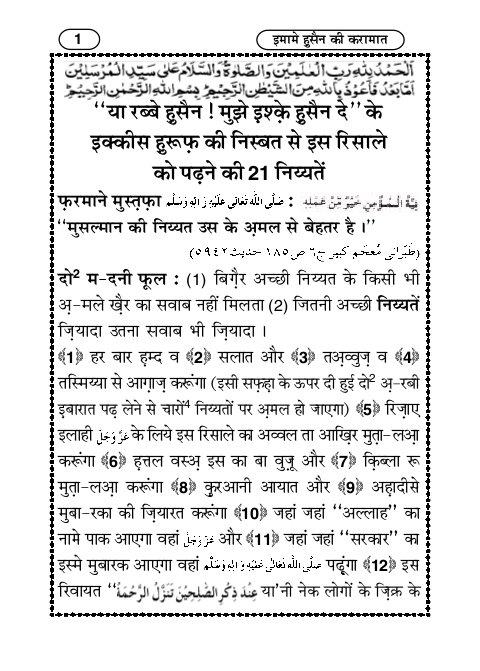 1
इमामे हुसैन की करामात
اَلْحَمْدُ لِلّٰهِ رَبِّ الْعٰلَمِيْنَ وَالصَّلٰوةُ وَالسَّلَامُ عَلٰى سَيِّدِ الْمُرْسَلِيْنَ
اَمَّا بَعْدُ فَاَعُوْذُ بِاللّٰهِ مِنَ الشَّيْطٰنِ الرَّجِيْمِ بِسْمِ اللّٰهِ الرَّحْمٰنِ الرَّحِيْمِ
‘‘या रब्बे हुसैन ! मुझे इश्के़ हुसैन दे’’ के
इक्कीस हुरूफ़ की निस्बत से इस रिसाले
को पढ़ने की 21 निय्यतें
फ़रमाने मुस्त़फ़ा صَلَّى اللّٰهُ تَعَالٰى عَلَيْهِ وَاٰلِهٖ وَسَلَّم : نِيَّةُ الْمُؤْمِنِ خَيْرٌ مِّنْ عَمَلِهٖ
‘‘मुसल्मान की निय्यत उस के अ़मल से बेहतर है ।’’
(طَبَرانی مُعجَم کبیر ج٦ ص١٨٥ حدیث ٥٩٤٢)
दो² म-दनी फूल : (1) बिग़ैर अच्छी निय्यत के किसी भी
अ़-मले खै़र का सवाब नहीं मिलता (2) जितनी अच्छी निय्यतें
ज़ियादा उतना सवाब भी ज़ियादा ।
﴾1﴿ हर बार हम्द व ﴾2﴿ सलात और ﴾3﴿ तअ़व्वुज़ व ﴾4﴿
तस्मिय्या से आग़ाज़ करूंगा (इसी सफ़्ह़ा के ऊपर दी हुई दो² अ़-रबी
इबारात पढ़ लेने से चारों⁴ निय्यतों पर अ़मल हो जाएगा) ﴾5﴿ रिज़ाए
इलाही عَزَّوَجَلَّ के लिये इस रिसाले का अव्वल ता आख़िर मुता़-लआ़
करूंगा ﴾6﴿ ह़त्तल वस्अ़ इस का बा वुज़ू और ﴾7﴿ क़िब्ला रू
मुता़-लआ़ करूंगा ﴾8﴿ कु़रआनी आयात और ﴾9﴿ अह़ादीसे
मुबा-रका की ज़ियारत करूंगा ﴾10﴿ जहां जहां ‘‘अल्लाह’’ का
नामे पाक आएगा वहां عَزَّوَجَلَّ और ﴾11﴿ जहां जहां ‘‘सरकार’’ का
इस्मे मुबारक आएगा वहां صَلَّى اللّٰهُ تَعَالٰى عَلَيْهِ وَاٰلِهٖ وَسَلَّم पढ़ूंगा ﴾12﴿ इस
रिवायत ‘‘عِنْدَ ذِكْرِ الصّٰلِحِيْنَ تَنَزَّلُ الرَّحْمَةُ या'नी नेक लोगों के ज़िक्र के